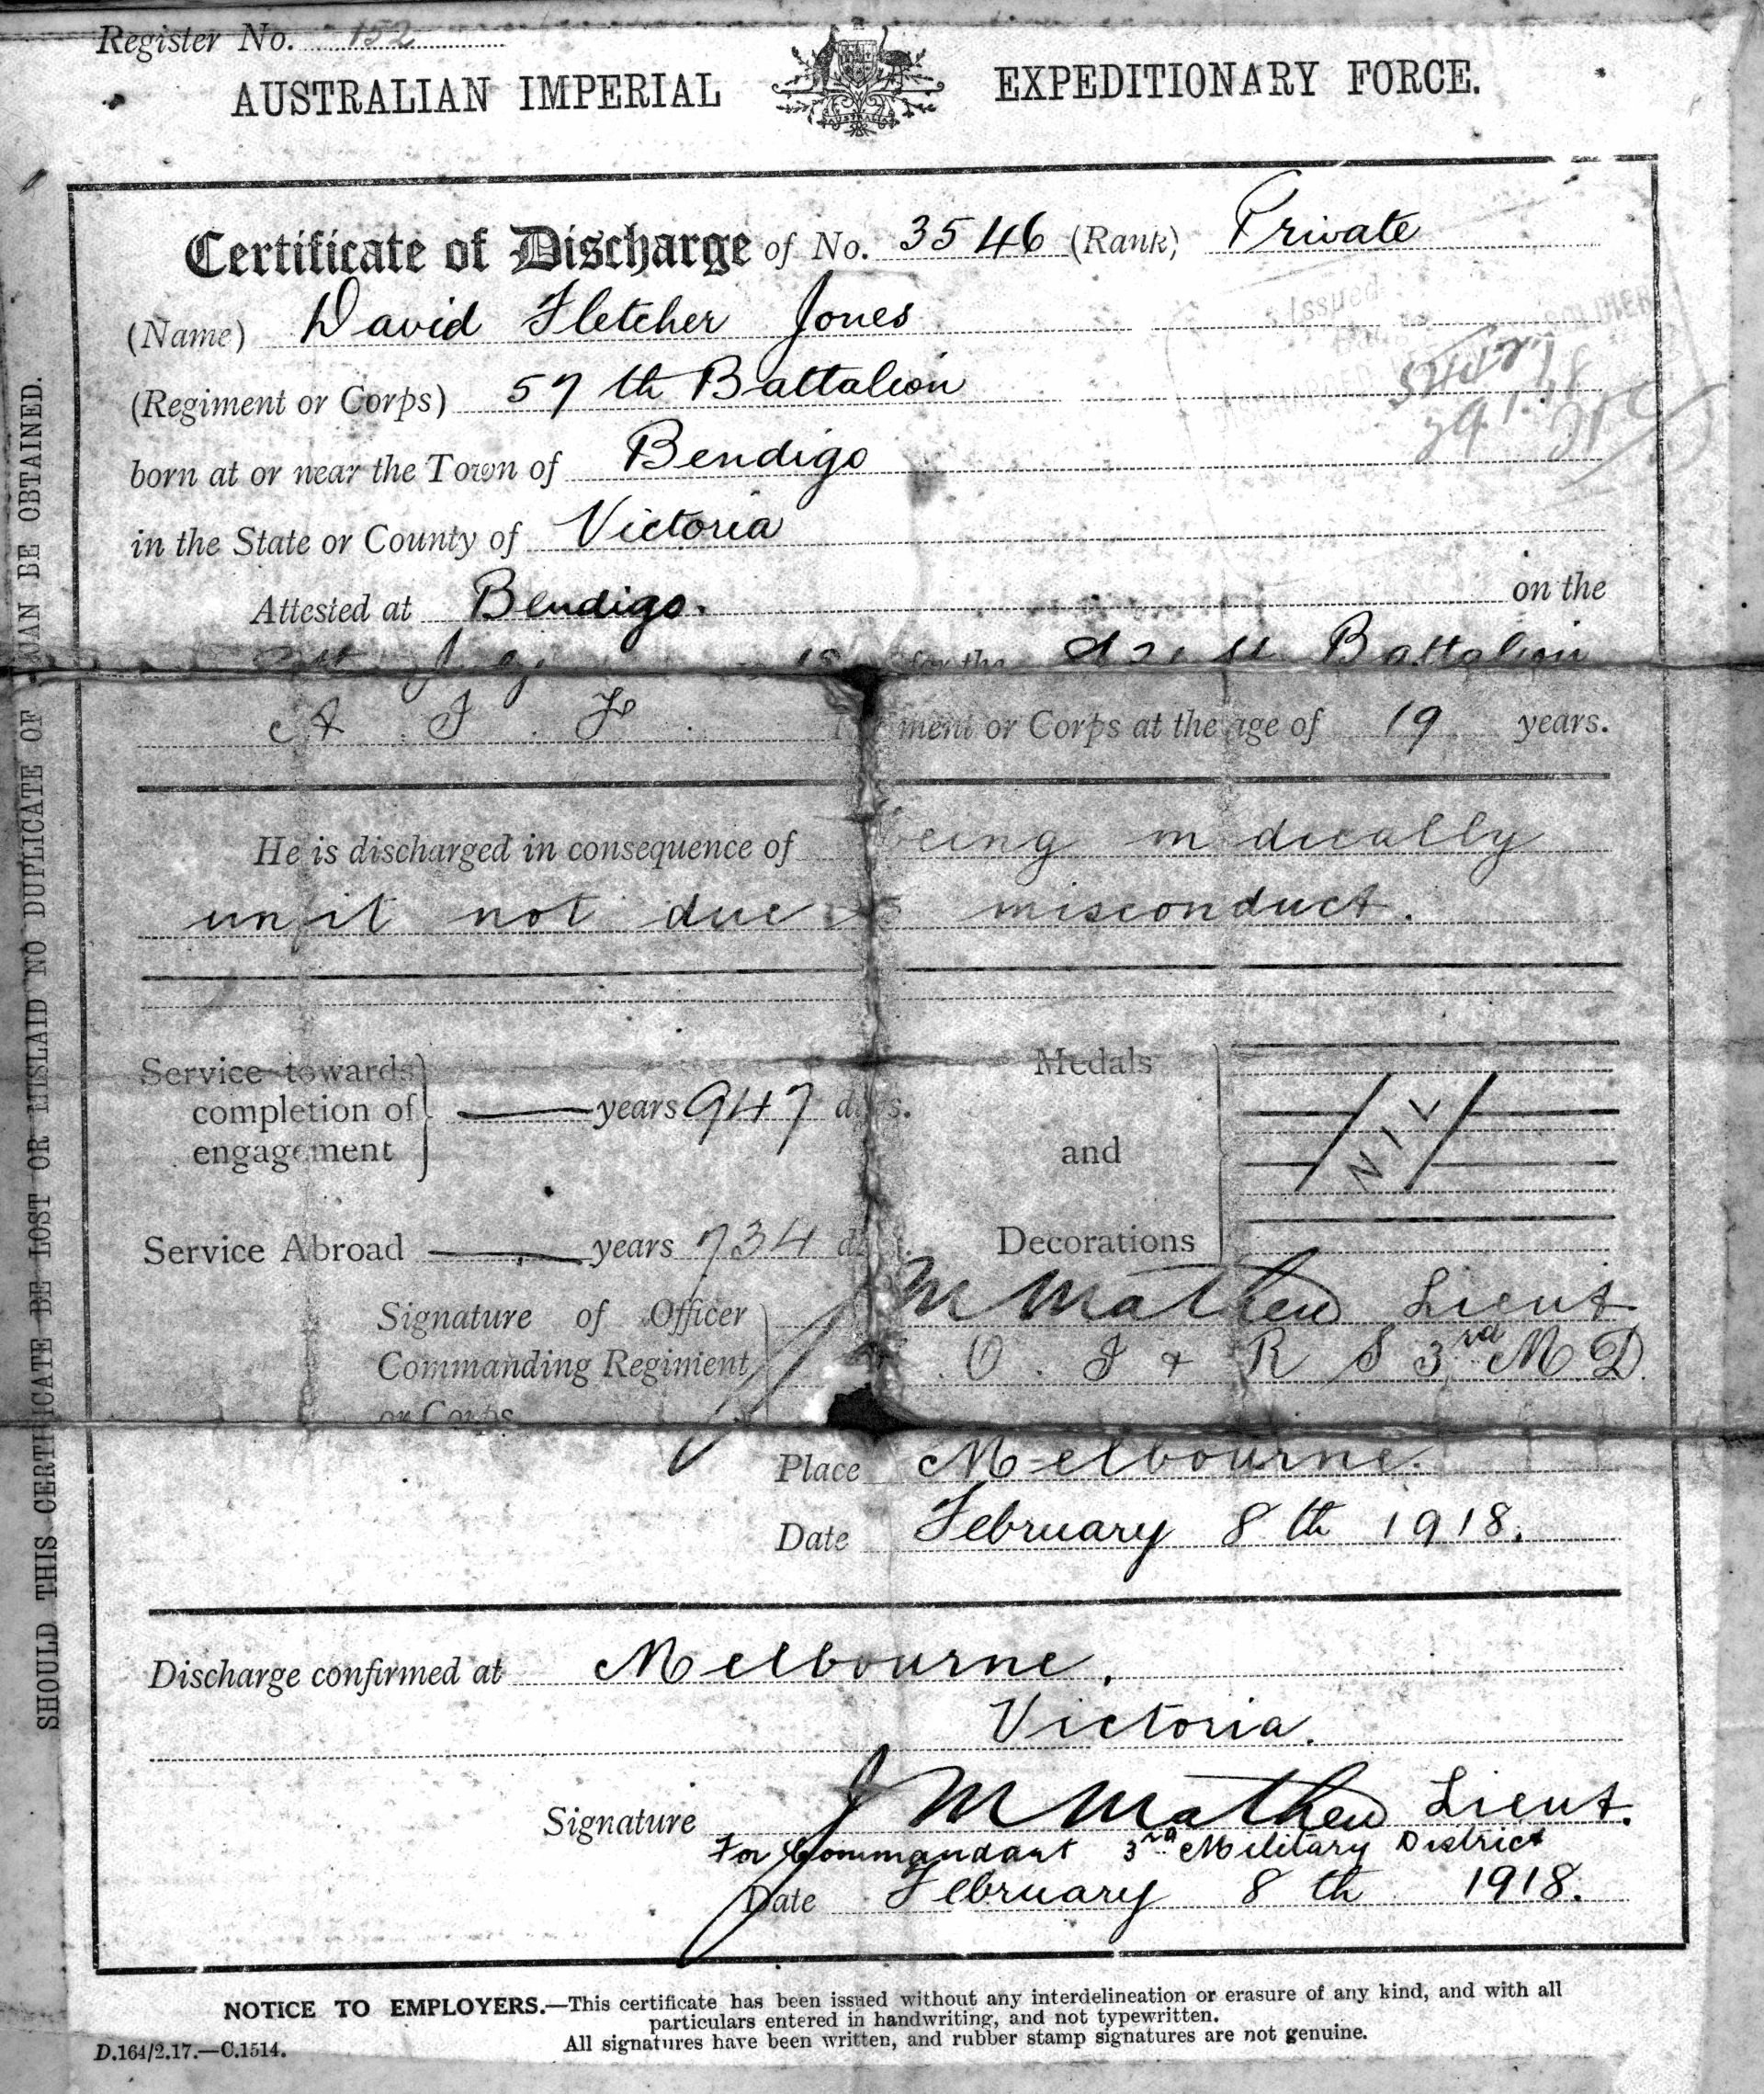 Register No. 152
AUSTRALIAN IMPERIAL EXPEDITIONARY FORCE.
AUSTRALIA
Certificate of Discharge of No. 3546 (Rank) Private
(Name) David Fletcher Jones
Issued
(Regiment or Corps) 57th Battalion
born at or near the Town of Bendigo
in the State or County of Victoria
Attested at Bendigo. on the
July for the 21st Battalion
A. I. F. ment or Corps at the age of 19 years.
He is discharged in consequence of being medically
unfit not due to misconduct.
Service towards completion of engagement } — years 947 days.
Medals and Decorations } NIL
Service Abroad — years 734
Signature of Officer Commanding Regiment or Corps } M Mathew Lieut
O. I & R S 3rd M.D.
Place Melbourne.
Date February 8th 1918.
Discharge confirmed at Melbourne.
Victoria.
Signature J M Mathew Lieut.
For Commandant 3rd Military District
Date February 8th 1918.
NOTICE TO EMPLOYERS.—This certificate has been issued without any interdelineation or erasure of any kind, and with all
particulars entered in handwriting, and not typewritten.
All signatures have been written, and rubber stamp signatures are not genuine.
D.164/2.17.—C.1514.
SHOULD THIS CERTIFICATE BE LOST OR MISLAID NO DUPLICATE OF CAN BE OBTAINED.